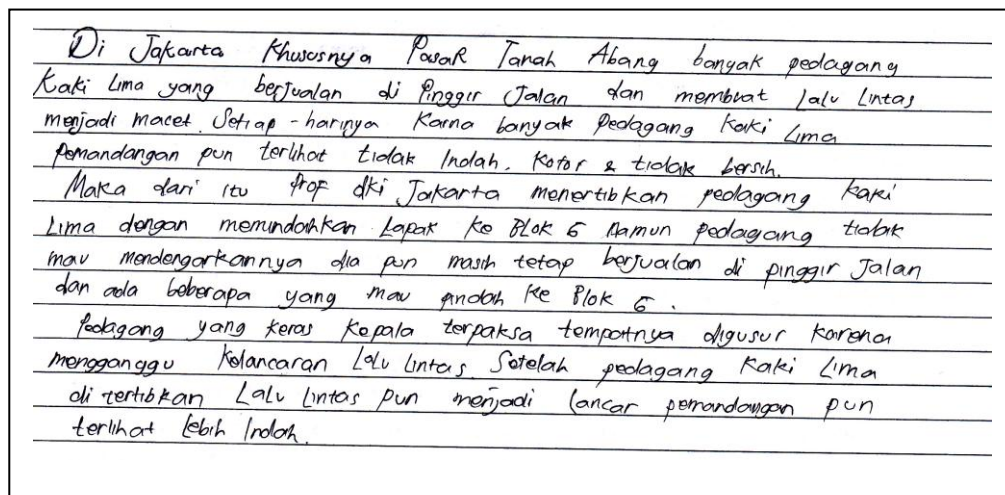 Di Jakarta Khususnya PasaR Tanah Abang banyak pedagang
Kaki Lima yang berjualan di Pinggir Jalan dan membuat lalu Lintas
menjadi macet. Setiap-harinya Karna banyak Pedagang Kaki Lima
Pemandangan pun terlihat tidak Indah. Kotor & tidak bersih.
Maka dari itu Prof dki Jakarta menertibkan pedagang kaki
Lima dengan memindahkan Lapak Ke BLOK G Namun pedagang tidak
mau mendengarkannya dia pun masih tetap berjualan di pinggir Jalan
dan ada beberapa yang mau pindah Ke Blok G.
Pedagang yang keras Kepala terpaksa tempatnya digusur Karena
mengganggu Kelancaran Lalu Lintas Setelah pedagang Kaki Lima
di tertibkan Lalu Lintas pun menjadi lancar pemandangan pun
terlihat Lebih Indah.